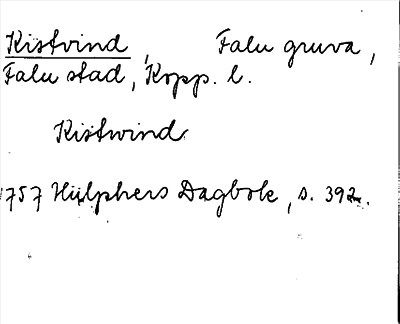 Kistvind, Falu gruva,
Falu stad, Kopp. l.
Kistwind
1757 Hülphers Dagbok, s. 392.